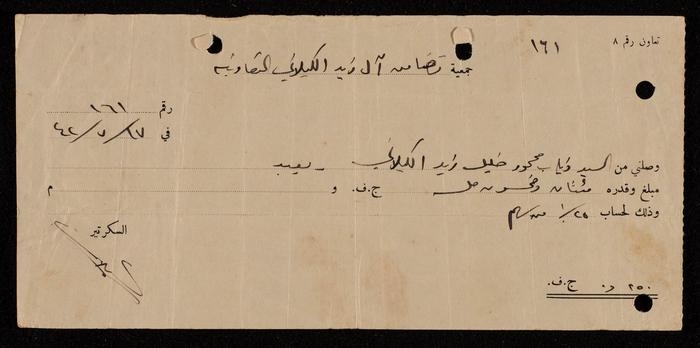 تعاون رقم ٨
١٦١
جمعية تضامن آل زيد الكيلاني التعاونية
رقم ١٦١
في ١٧/ ٧/ ٤٢
وصلني من السيد ذياب محمود خليل زيد الكيلاني يعبد
مبلغ وقدره مئتان وخمسون مل ج.ف. و م
وذلك لحساب ١/٢٥ من سهم
السكرتير
٢٥٠ و٠ ج.ف.